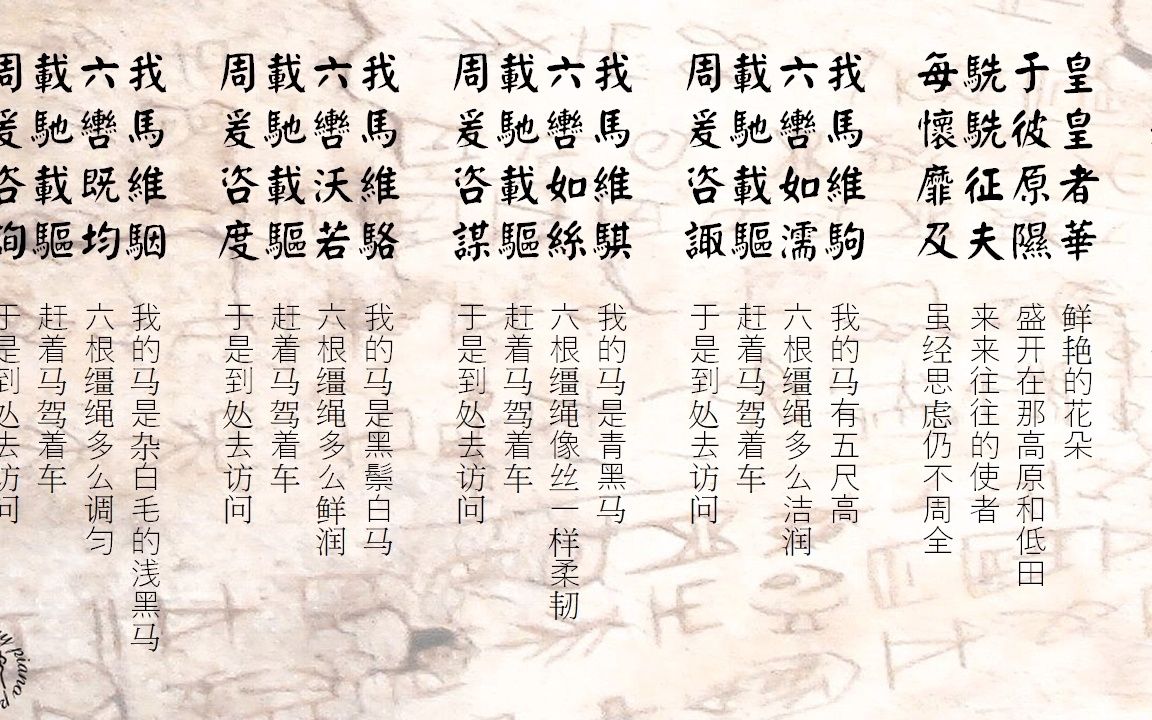 皇皇者華
于彼原隰
駪駪征夫
每懷靡及
鲜艳的花朵
盛开在那高原和低田
来来往往的使者
虽经思虑仍不周全
我馬維駒
六轡如濡
載馳載驅
周爰咨諏
我的马有五尺高
六根缰绳多么洁润
赶着马驾着车
于是到处去访问
我馬維騏
六轡如絲
載馳載驅
周爰咨謀
我的马是青黑马
六根缰绳像丝一样柔韧
赶着马驾着车
于是到处去访问
我馬維駱
六轡沃若
載馳載驅
周爰咨度
我的马是黑鬃白马
六根缰绳多么鲜润
赶着马驾着车
于是到处去访问
我馬維駰
六轡既均
載馳載驅
周爰咨詢
我的马是杂白毛的浅黑马
六根缰绳多么调匀
赶着马驾着车
于是到处去访问
piano